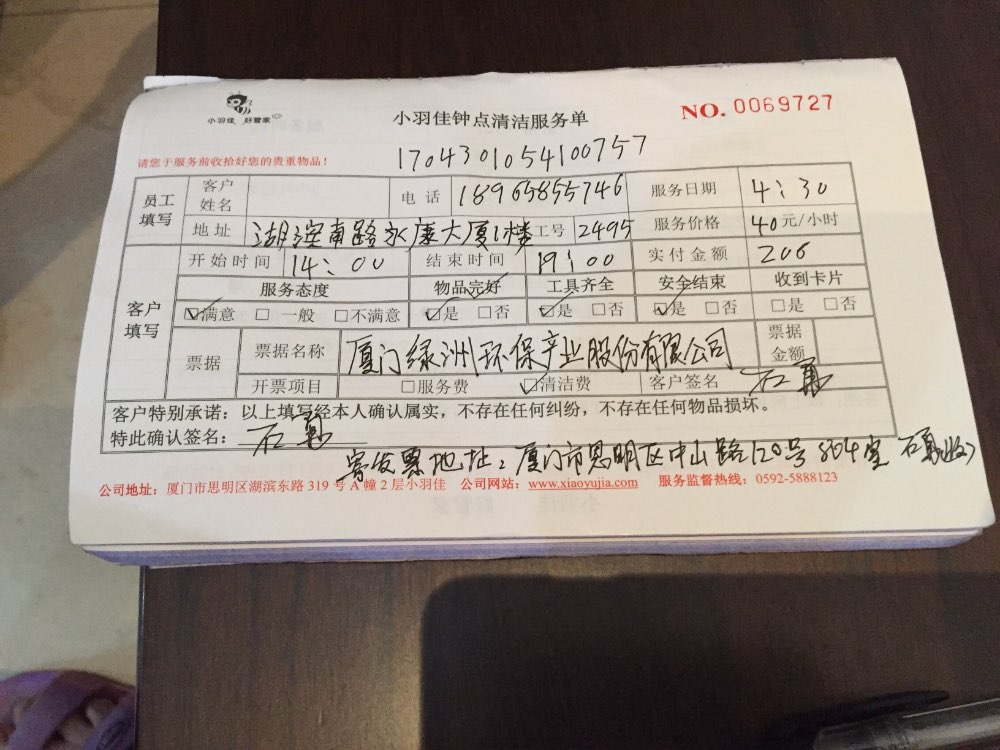 小羽佳 好管家
小羽佳钟点清洁服务单
NO. 0069727
请您于服务前收拾好您的贵重物品！
1704301054100757
员工填写 客户姓名 电话 18965855746 服务日期 4:30
地址 湖滨南路永康大厦1楼 工号 2495 服务价格 40元/小时
客户填写 开始时间 14:00 结束时间 19:00 实付金额 206
服务态度 物品完好 工具齐全 安全结束 收到卡片
☑满意 □一般 □不满意 ☑是 □否 ☑是 □否 ☑是 □否 □是 □否
票据 票据名称 厦门绿洲环保产业股份有限公司 票据金额
开票项目 □服务费 ☑清洁费 客户签名 石勇
客户特别承诺：以上填写经本人确认属实，不存在任何纠纷，不存在任何物品损坏。
特此确认签名： 石勇
寄发票地址：厦门市思明区中山路120号804室 石勇收
公司地址：厦门市思明区湖滨东路319号A幢2层小羽佳 公司网站：www.xiaoyujia.com 服务监督热线：0592-5888123